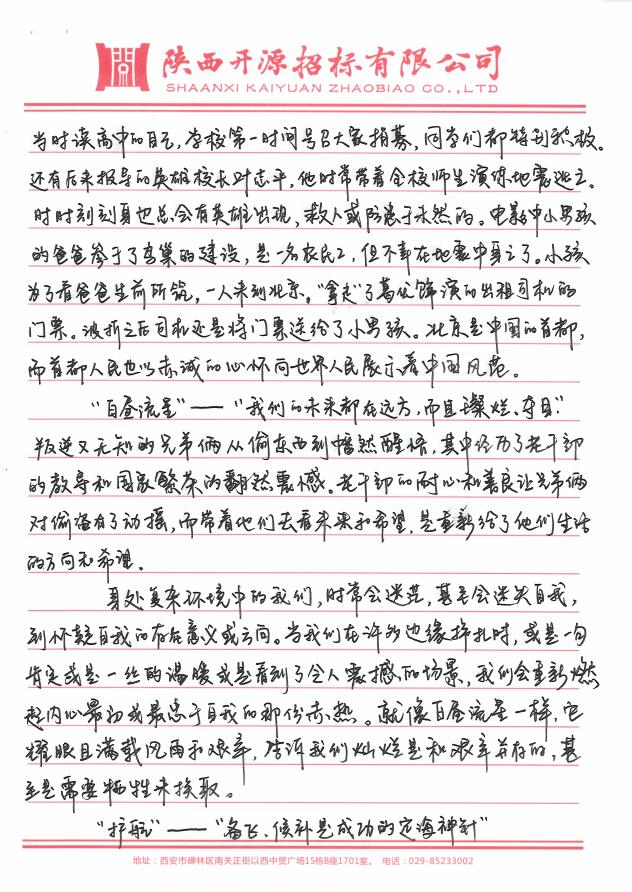 開
陕西开源招标有限公司
SHAANXI KAIYUAN ZHAOBIAO CO.,LTD
当时读高中的自己,学校第一时间号召大家捐募,同学们都特别积极。
还有后来报导的英雄校长叶志平,他时常带着全校师生演练地震逃亡。
时时刻刻身边总会有英雄出现,救人或防患于未然的。电影中小男孩
的爸爸参于了鸟巢的建设,是一名农民工,但不幸在地震中身亡了。小孩
为了看爸爸生前所筑,一人来到北京。“拿走”了葛优饰演的出租司机的
门票。波折之后司机还是将门票送给了小男孩。北京是中国的首都,
而首都人民也以赤诚的心怀向世界人民展示着中国风范。
“白昼流星”——“我们的未来都在远方,而且璨烂、夺目”
叛逆又无知的兄弟俩从偷东西到幡然醒悟,其中经历了老干部
的教导和国家繁荣的翻然震憾。老干部的耐心和善良让兄弟俩
对偷盗有了动摇,而带着他们去看未来和希望,是重新给了他们生活
的方向和希望。
身处复杂环境中的我们,时常会迷茫,甚至会迷失自我,
到怀疑自我的存在意义或方向。当我们在许多边缘挣扎时,或是一句
肯定或是一丝的温暖或是看到了令人震撼的场景,我们会重新燃
起内心最初或最忠于自我的那份赤热。就像白昼流星一样,它
耀眼且满载风雨和艰辛,告诉我们灿烂是和艰辛并存的,甚
至是需要牺牲来换取。
“护航”——“备飞、候补是成功的定海神针”
地址:西安市碑林区南关正街以西中贸广场15栋B座1701室。 电话:029-85233002